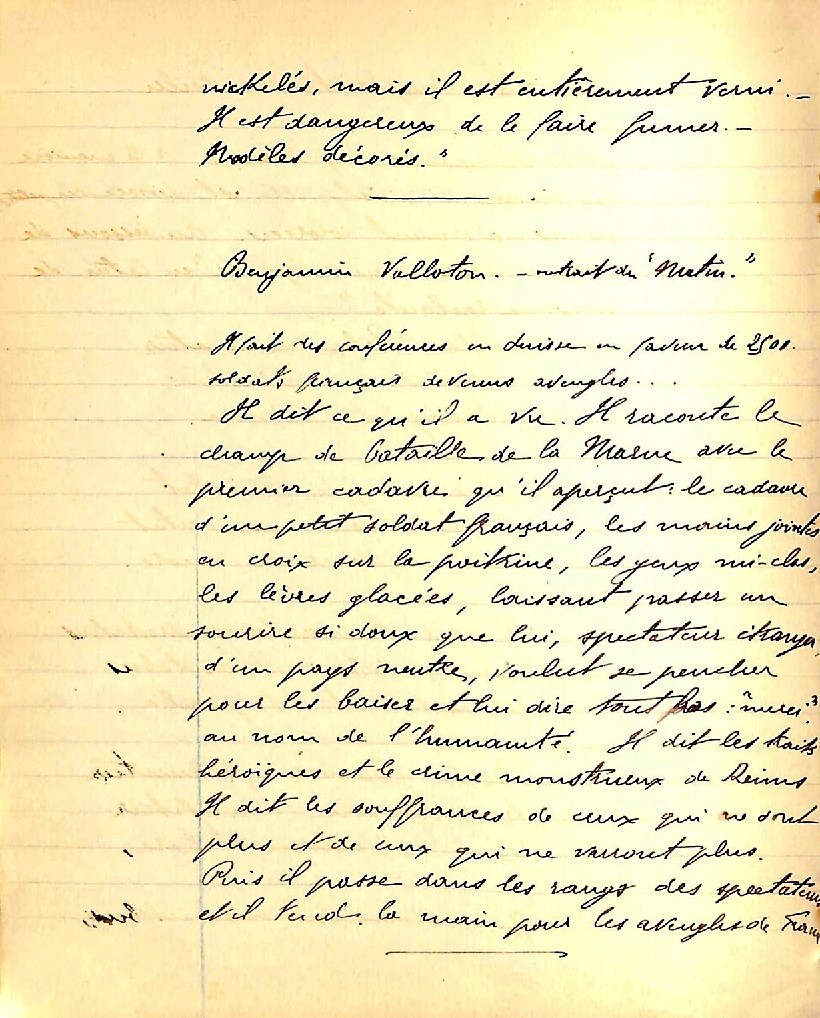 nickelés, mais il est entièrement verni. –
Il est dangereux de le faire fumer. –
Modèles décorés."
Benjamin Valloton. – extrait du "Matin."
Il fait des conférences en Suisse en faveur de 2500
soldats français devenus aveugles...
Il dit ce qu'il a vu. Il raconte le
champ de bataille de la Marne avec le
premier cadavre qu'il aperçut: le cadavre
d'un petit soldat français, les mains jointes
en croix sur la poitrine, les yeux mi-clos,
les lèvres glacées, laissant passer un
sourire si doux que lui, spectateur étranger,
d'un pays neutre, voulut se pencher
pour les baiser et lui dire tout bas: "merci"
au nom de l'humanité. Il dit les traits
héroïques et le crime monstrueux de Reims
Il dit les souffrances de ceux qui ne sont
plus et de ceux qui ne verront plus.
Puis il passe dans les rangs des spectateurs
et il tend la main pour les aveugles de France